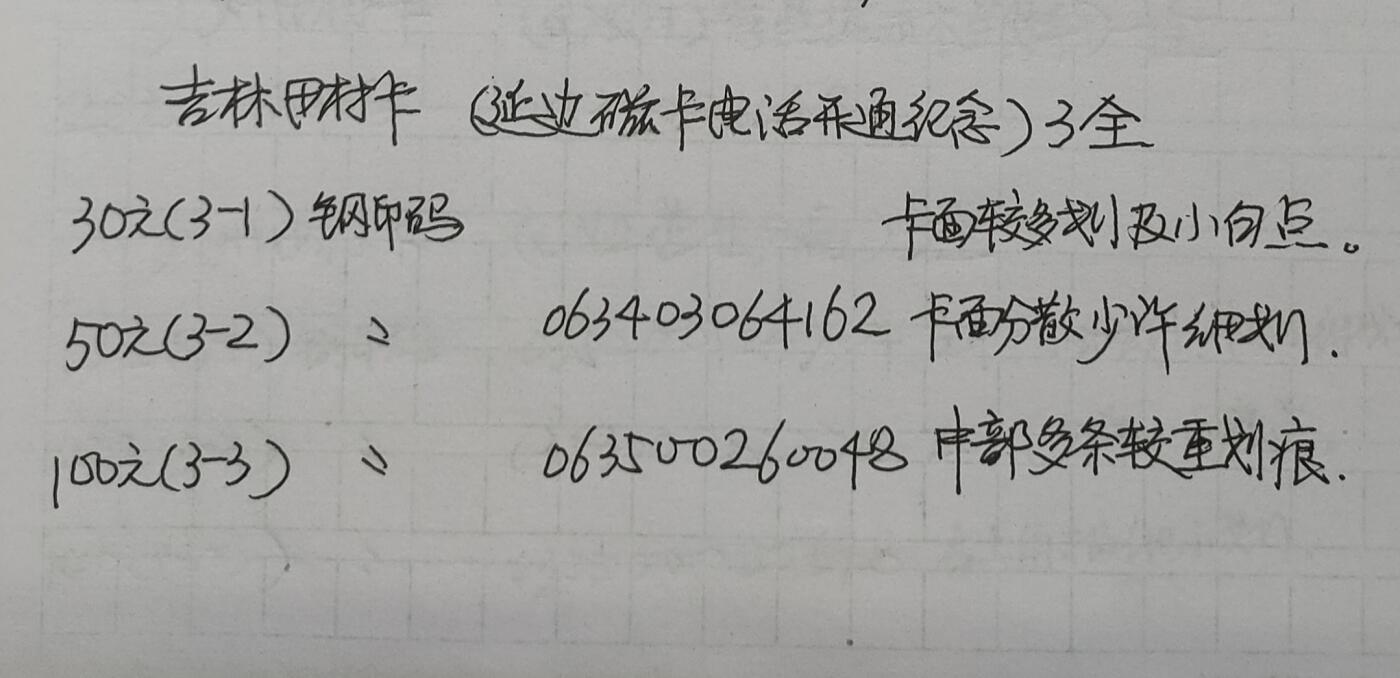 吉林田村卡 (延边磁卡电话开通纪念) 3全
30元(3-1) 钢印码 卡面较多划及小白点。
50元(3-2) 〃 063403064162 卡面分散少许细划.
100元(3-3) 〃 063500260048 中部多条较重划痕.